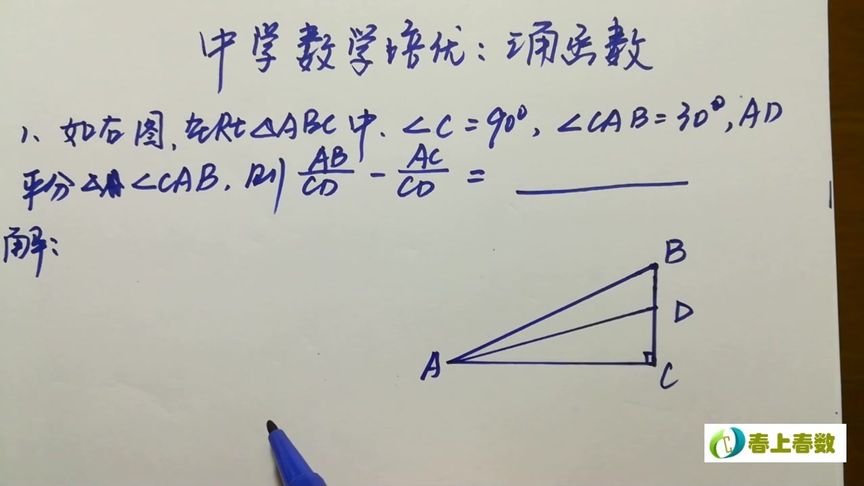 中学数学培优:三角函数
1、如右图,在Rt△ABC中,∠C=90°,∠CAB=30°,AD
平分∠CAB,则 AB/CD - AC/CD = ______
解:
B
D
A
C
春上春数